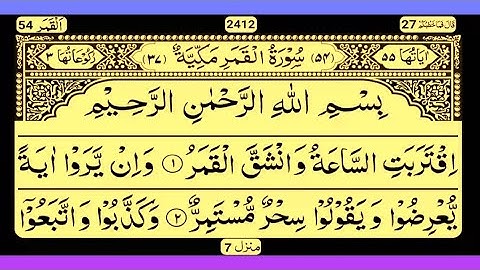 اَلْقَمَر 54
2412
قَالَ فَمَا خَطْبُكُمْ 27
اٰیَاتُهَا ٥٥
(٥٤) سُوْرَةُ الْقَمَرِ مَكِّيَّةٌ (٣٧)
رُكُوْعَاتُهَا ٣
بِسْمِ اللهِ الرَّحْمٰنِ الرَّحِيْمِ
اِقْتَرَبَتِ السَّاعَةُ وَ انْشَقَّ الْقَمَرُ ١ وَ اِنْ يَّرَوْا اٰيَةً
يُّعْرِضُوْا وَ يَقُوْلُوْا سِحْرٌ مُّسْتَمِرٌّ ٢ وَ كَذَّبُوْا وَ اتَّبَعُوْۤا
منزل 7